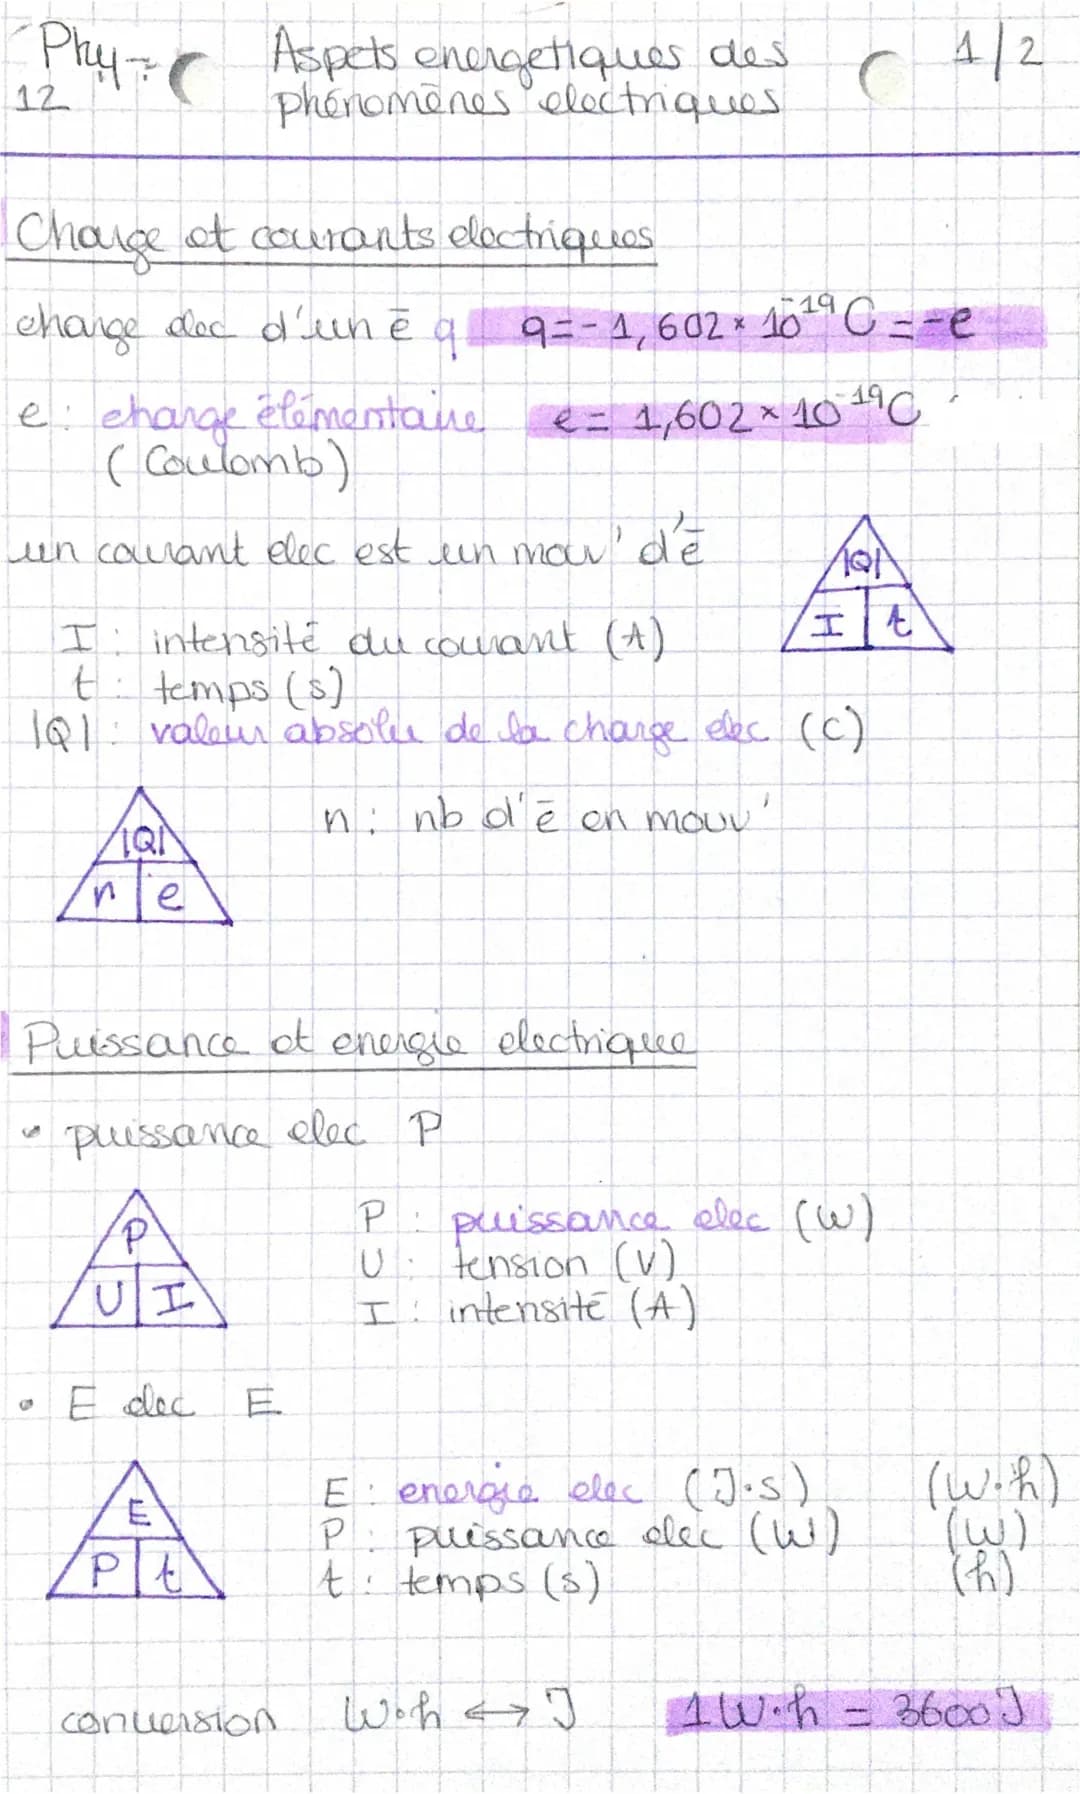 Phy- Aspets energetiques des 1/2
12 phénomènes electriques
Charge et courants electriques
charge elec d'un ē q q=-1,602×10⁻¹⁹C=-e
e: charge élémentaire e= 1,602×10⁻¹⁹C
(Coulomb)
un courant elec est un mouv' d'ē
|Q|
I t
I: intensité du courant (A)
t: temps (s)
|Q|: valeur absolue de la charge elec (C)
n: nb d'ē en mouv'
|Q|
n e
Puissance et energie electrique
• puissance elec P
P
U I
P: puissance elec (W)
U: tension (V)
I: intensité (A)
• E elec E
E
P t
E: energie elec (J·s) (W·h)
P: puissance elec (W) (W)
t: temps (s) (h)
conversion W·h ↔ J 1W·h = 3600J